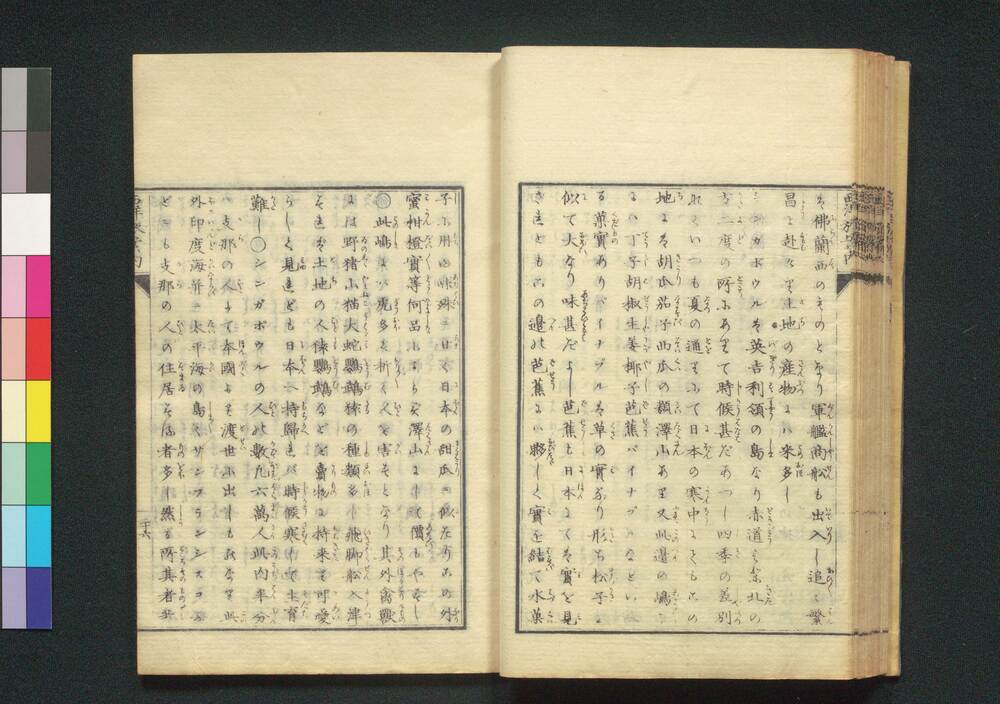 は佛蘭西のものとなり軍艦商船も出入し追々繁
昌に赴けり土地の産物には米多し
シンガポウルは英吉利領の島なり赤道より北の
方二度の所にありて時候甚だあつし四季の差別
なくいつも夏の通りにて日本の寒中にてもこの
地には胡瓜茄子西瓜の類澤山あり又此邊の嶋に
は丁子胡椒生姜椰子芭蕉パイナプルなどいへ
る菓實ありパイナプルは草の實なり形ち松子に
似て大なり味甚だよし芭蕉も日本にては實を見
ざれどもこの邊の芭蕉には夥しく實を結て水菓
子に用ゆ味殊によく日本の甜瓜に似たりこの外
蜜柑橙實等何品によらず澤山にして價もやすし
〇此嶋には虎多く折々人を害すとなり其外禽獸
には野猪山猫大蛇鸚鵡猿の種類多し飛脚船入津
すれば土地の人猿鸚鵡などを賣物に持來る可愛
らしく見ゆれども日本へ持歸れば時候寒くして生育
難し〇シンガポウルの人口數凡六萬人此内半分
は支那の人にて本國より渡世に出しものなり此
外印度海并に太平海の島々サンフランシスコな
どにも支那の人の住居する者多し然る所其者共
二十六